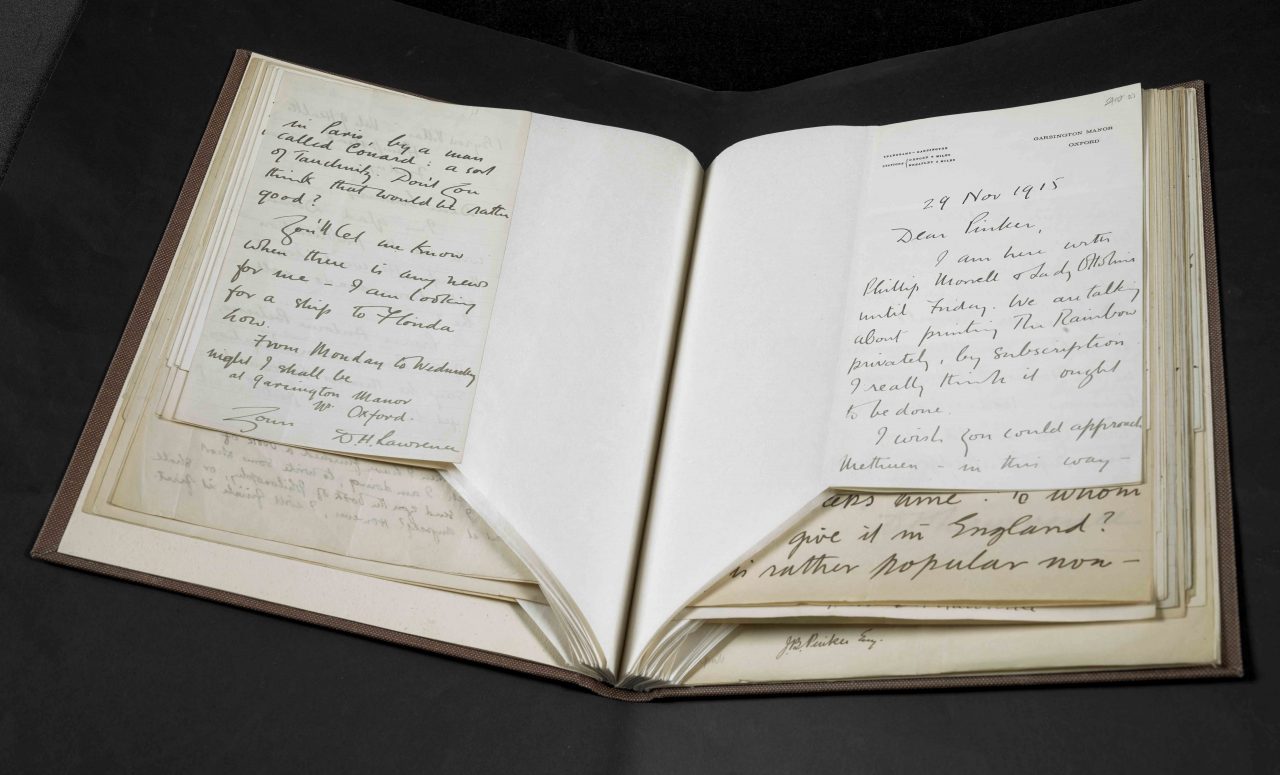 in Paris, by a man
called Conard: a sort
of Tauchnitz. Don't you
think that would be rather
good?
You'll let me know
when there is any news
for me – I am looking
for a ship to Florida
now.
From Monday to Wednesday
night I shall be
at Garsington Manor
Nr Oxford.
Yours
D.H. Lawrence
GARSINGTON MANOR
OXFORD
TELEGRAMS – GARSINGTON
STATIONS OXFORD 6 MILES
WHEATLEY 3 MILES
29 Nov 1915
Dear Pinker,
I am here with
Phillip Morrell & Lady Ottoline
until Friday. We are talking
about printing The Rainbow
privately, by subscription.
I really think it ought
to be done.
I wish you could approach
Methuen – in this way –
time. To whom
give it in England?
is rather popular non–
J.B. Pinker Esq.